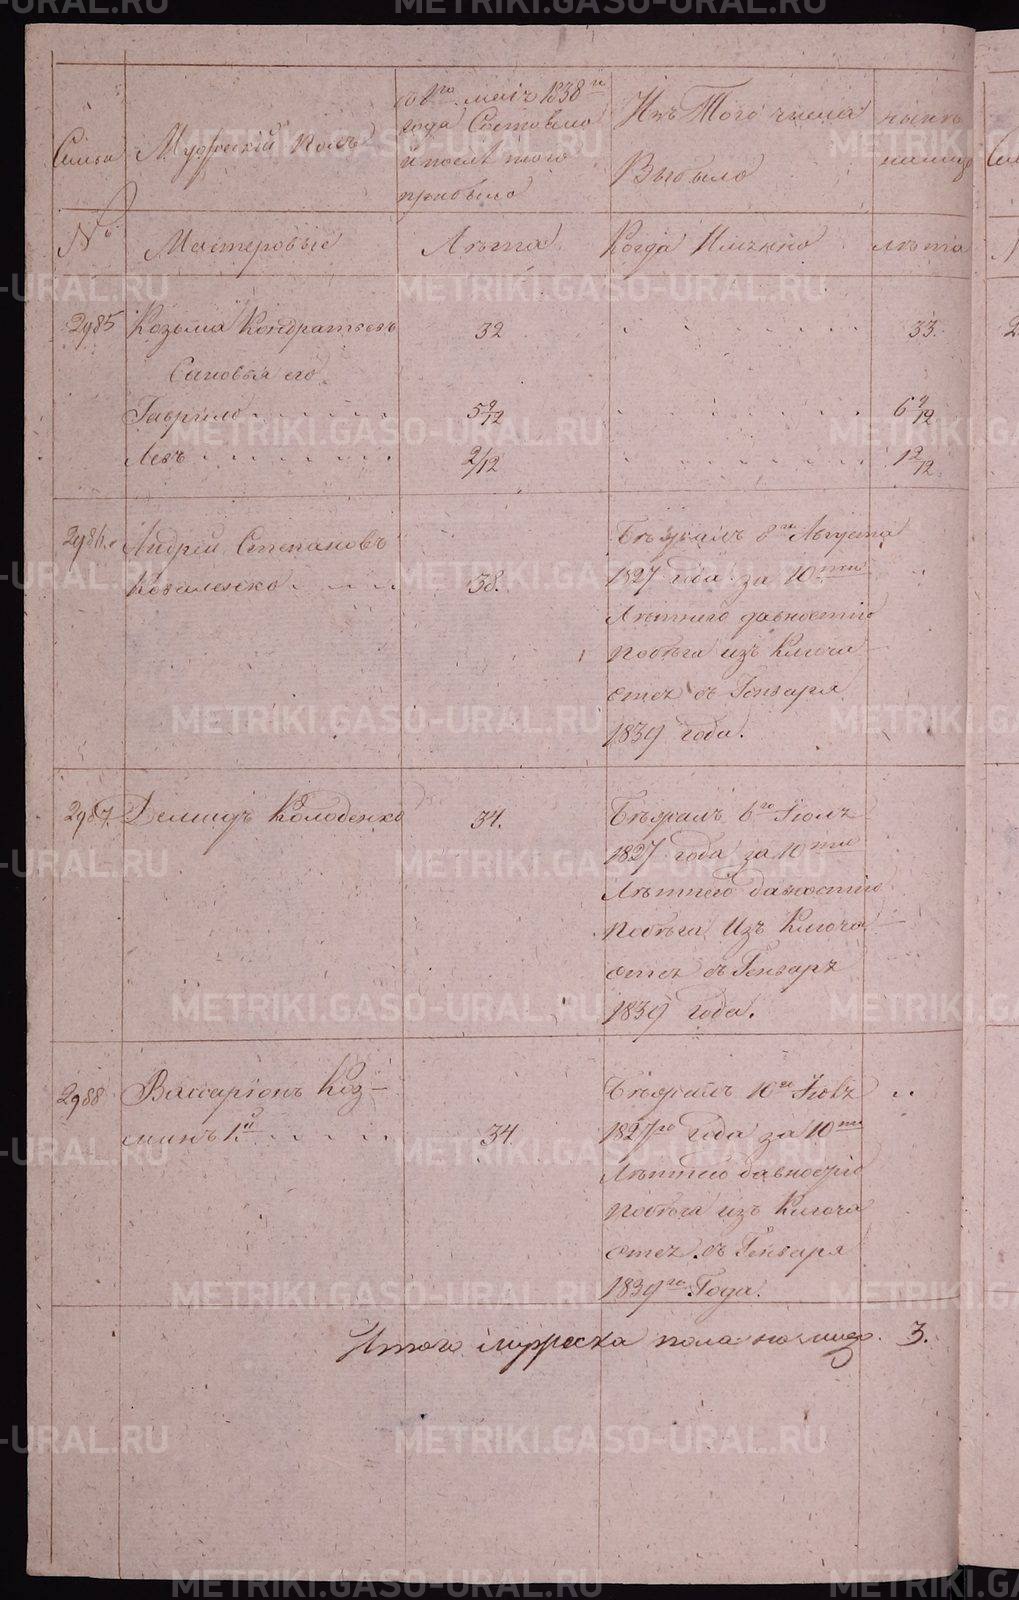 Семья
Мужескій полъ
къ 1го маія 1838го
года Состояло
и послѣ того
прибыло
Изъ Того числа
Выбыло
нынѣ
на лицо
№
Мастеровые
Лѣта
Когда Имянно
лѣта
2985 Козьма Кондратьевъ 32 33.
Сыновья его
Гаврило 5 2/12 6 2/12
Левъ 2/12 1 2/12
2986. Андрей Степановъ
Коваленко 38.
Бѣжалъ 8го Августа
1827 года за 10ти
Лѣтнею давностію
побѣга изъ Ключа
отсч съ Генваря
1839 года.
2987. Демидъ Колоденко 34.
Бѣжалъ 6го Іюля
1827 года за 10ти
Лѣтнею давностію
побѣга Изъ Ключа
отсч съ Генваря
1839 Года.
2988 Вассаріонъ Коз-
минъ 1й 34
Бѣжалъ 10го Іюля
1827го года за 10ти
Лѣтнею давностію
побѣга изъ Ключа
отсч съ Генваря
1839го Года.
Итого мужеска пола на лицо. 3.
METRIKI.GASO-URAL.RU